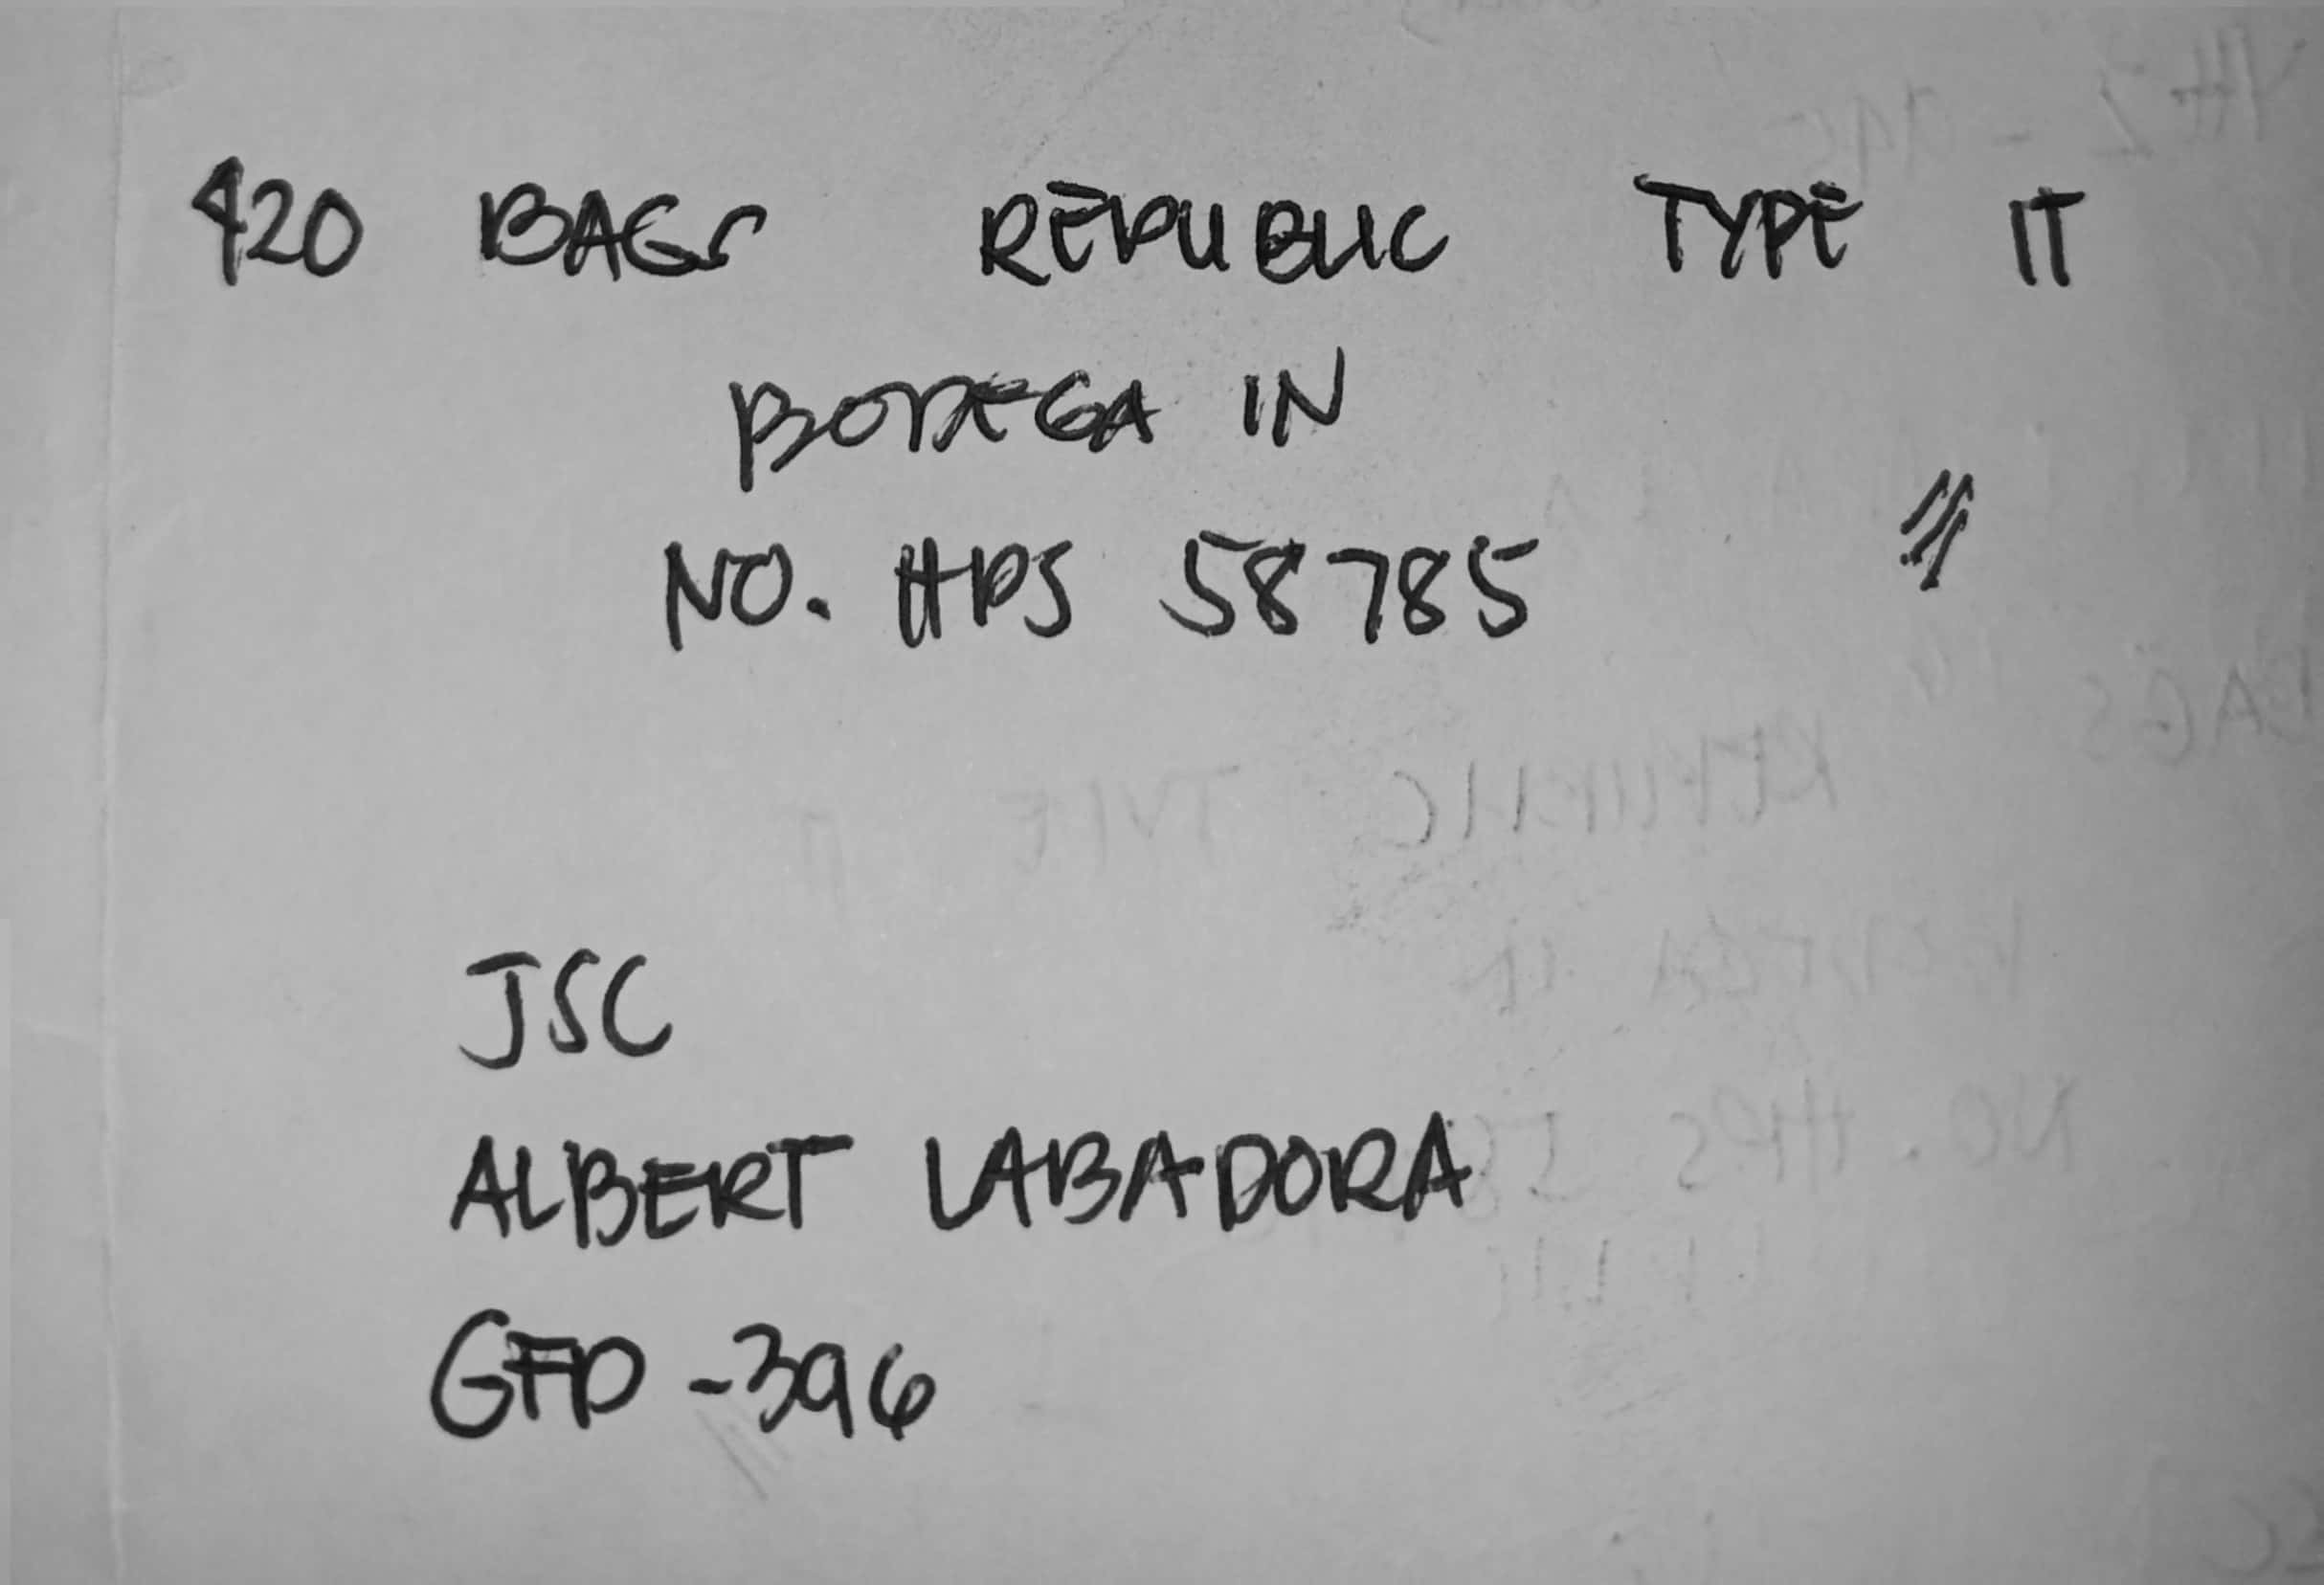 420 BAGS REPUBLIC TYPE IT
BODEGA IN
NO. HPS 58785
JSC
ALBERT LABADORA
GFD - 396